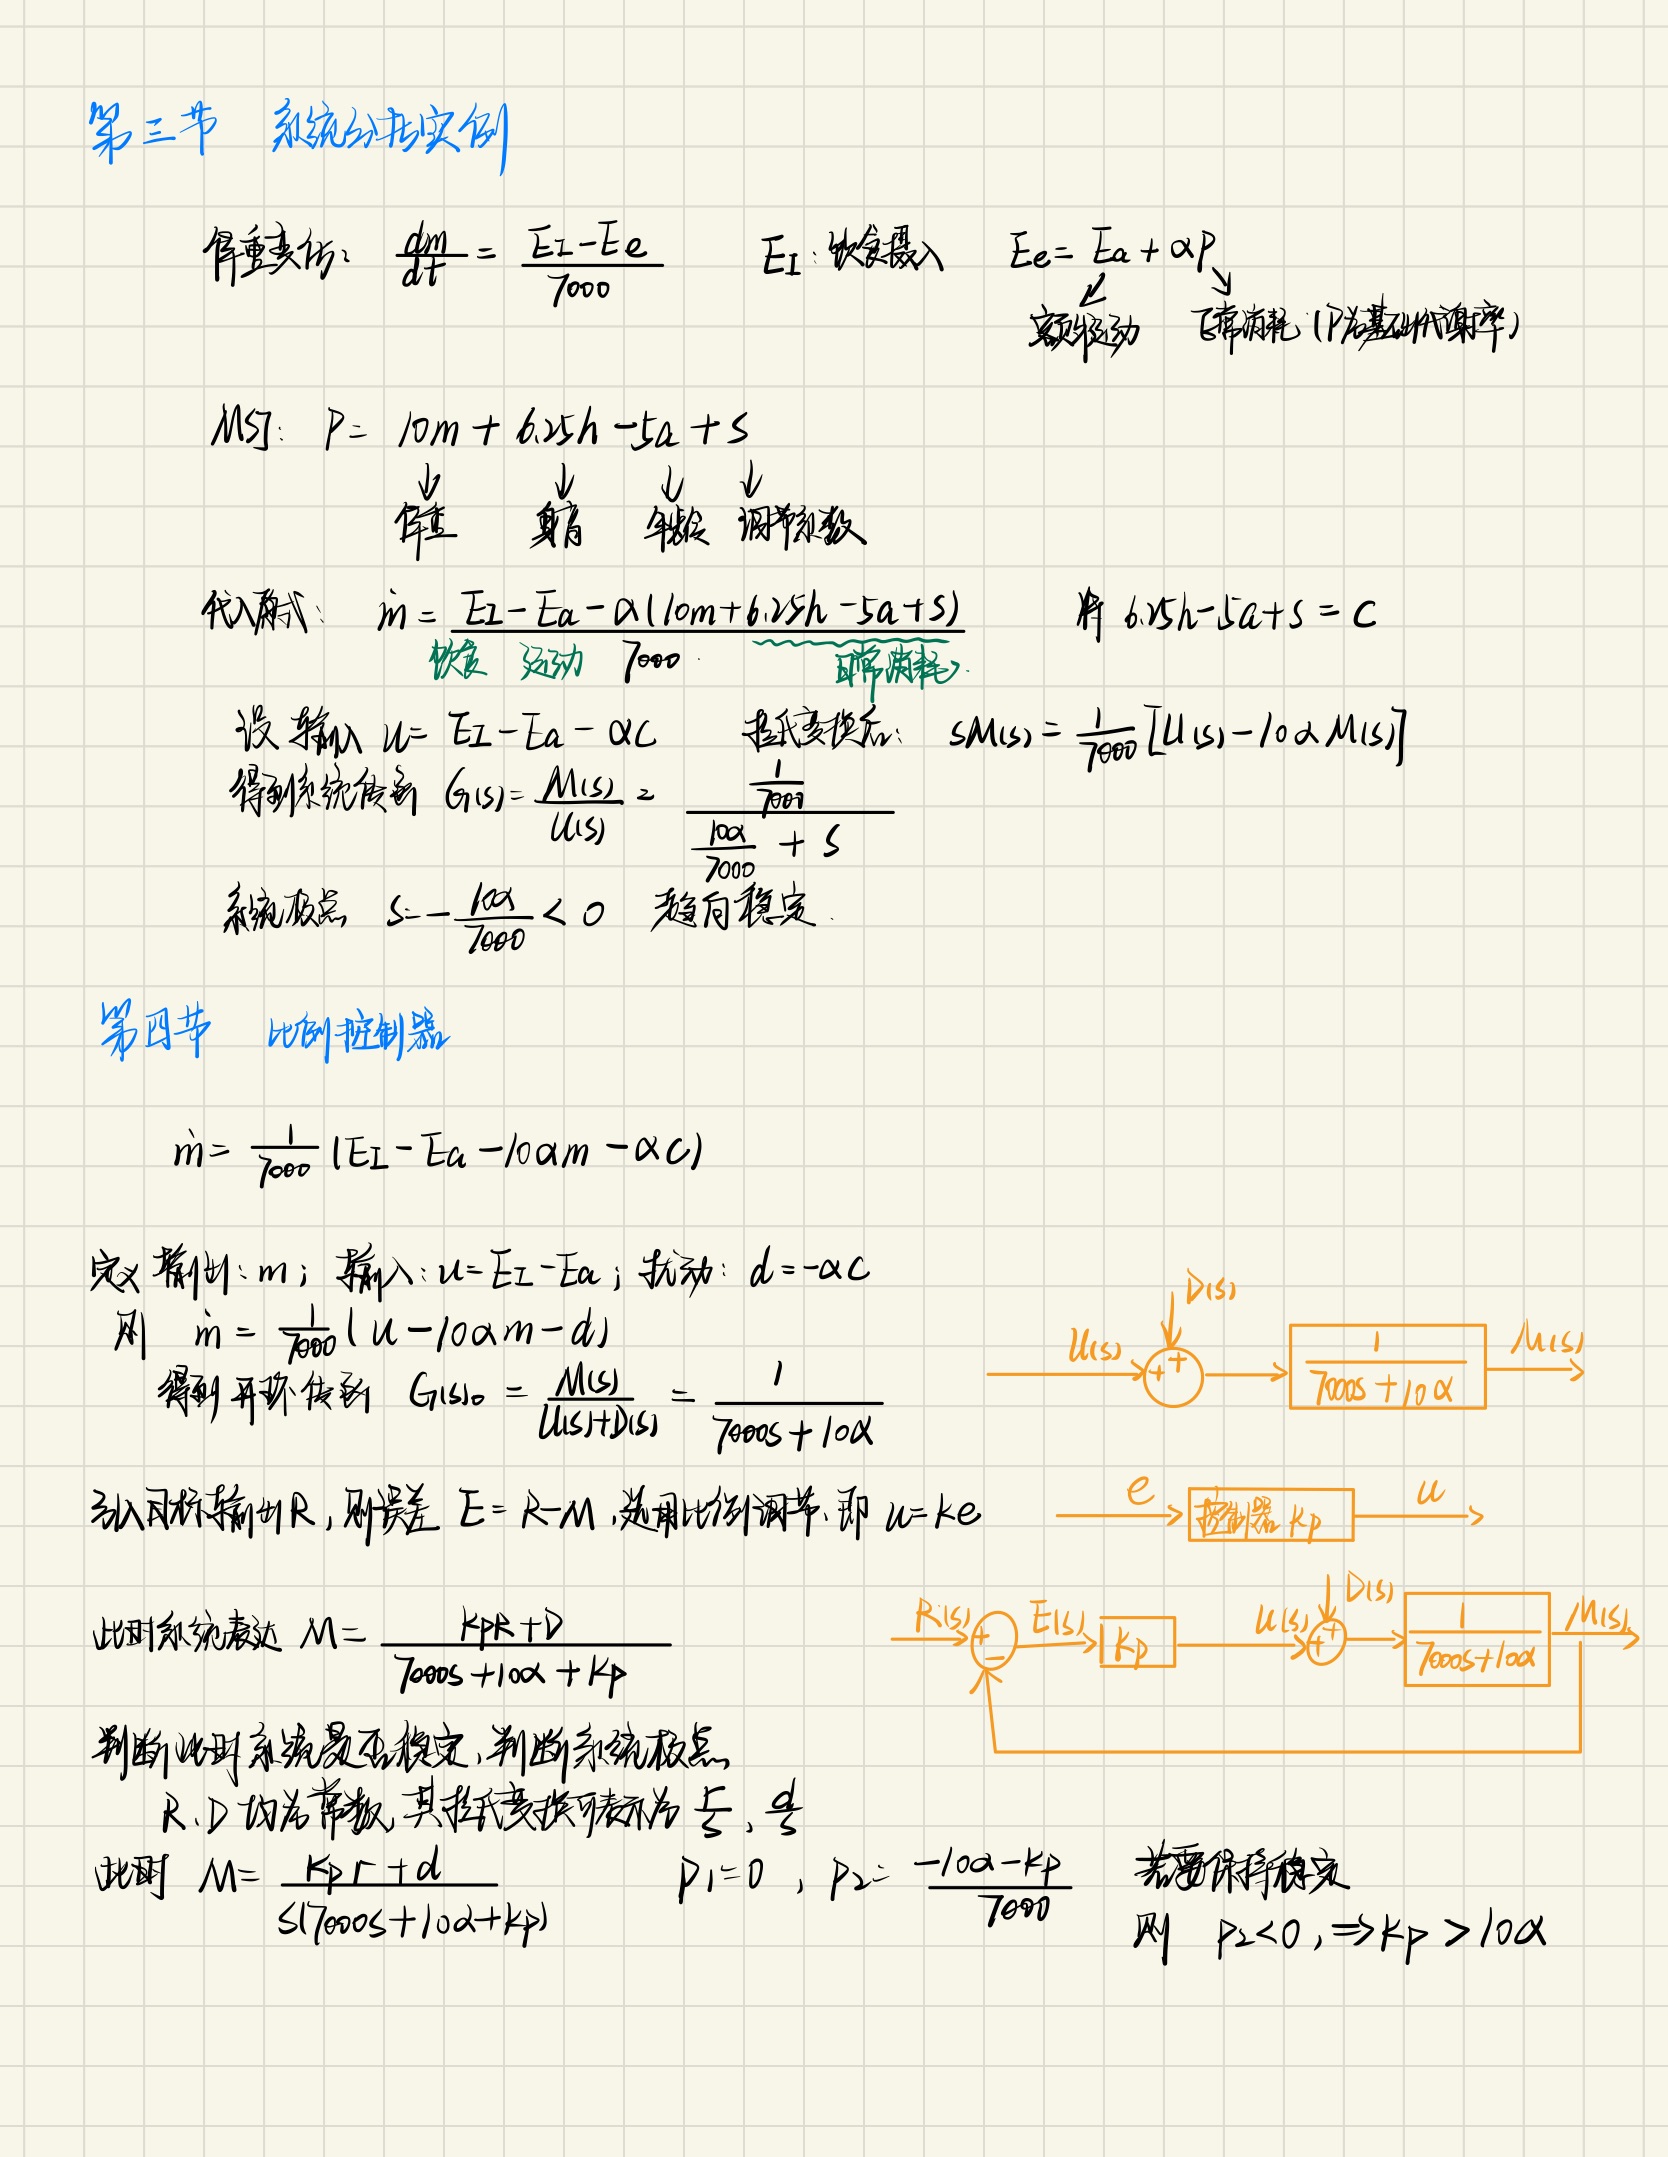 第三节 系统分析实例
体重变化: dm/dt = (EI-Ee)/7000 EI: 饮食摄入 Ee = Ea + αP
额外运动 日常消耗 (P为基础代谢率)
MSJ: P = 10m + 6.25h - 5a + s
↓ ↓ ↓ ↓
体重 身高 年龄 调节系数
代入原式: ṁ = (EI - Ea - α(10m + 6.25h - 5a + s))/7000 将 6.25h - 5a + s = C
饮食 运动 日常消耗
设 输入 u = EI - Ea - αC 拉氏变换后: sM(s) = 1/7000 [U(s) - 10αM(s)]
得到系统传函 G(s) = M(s)/U(s) = (1/7000)/(10α/7000 + s)
系统极点 s = -10α/7000 < 0 趋向稳定.
第四节 比例控制器
ṁ = 1/7000 (EI - Ea - 10αm - αC)
定义 输出: m; 输入: u = EI - Ea; 扰动: d = -αC
则 ṁ = 1/7000 (u - 10αm - d)
得到 开环传函 G(s)o = M(s)/(U(s)+D(s)) = 1/(7000s + 10α)
D(s)
U(s) + + 1/(7000s + 10α) M(s)
引入目标输出R, 则误差 E = R - M, 选用比例调节, 即 u = ke
e 控制器 Kp u
此时系统表达 M = (KpR + D)/(7000s + 10α + Kp)
R(s) + - E(s) Kp U(s) D(s) + + 1/(7000s+10α) M(s)
判断此时系统是否稳定, 判断系统极点
R、D 均为常数, 其拉氏变换可表示为 r/s、d/s
此时 M = (Kp r + d)/(s(7000s + 10α + Kp)) P1 = 0, P2 = (-10α - Kp)/7000 若要保持稳定
则 P2 < 0, ⇒ Kp > 10α